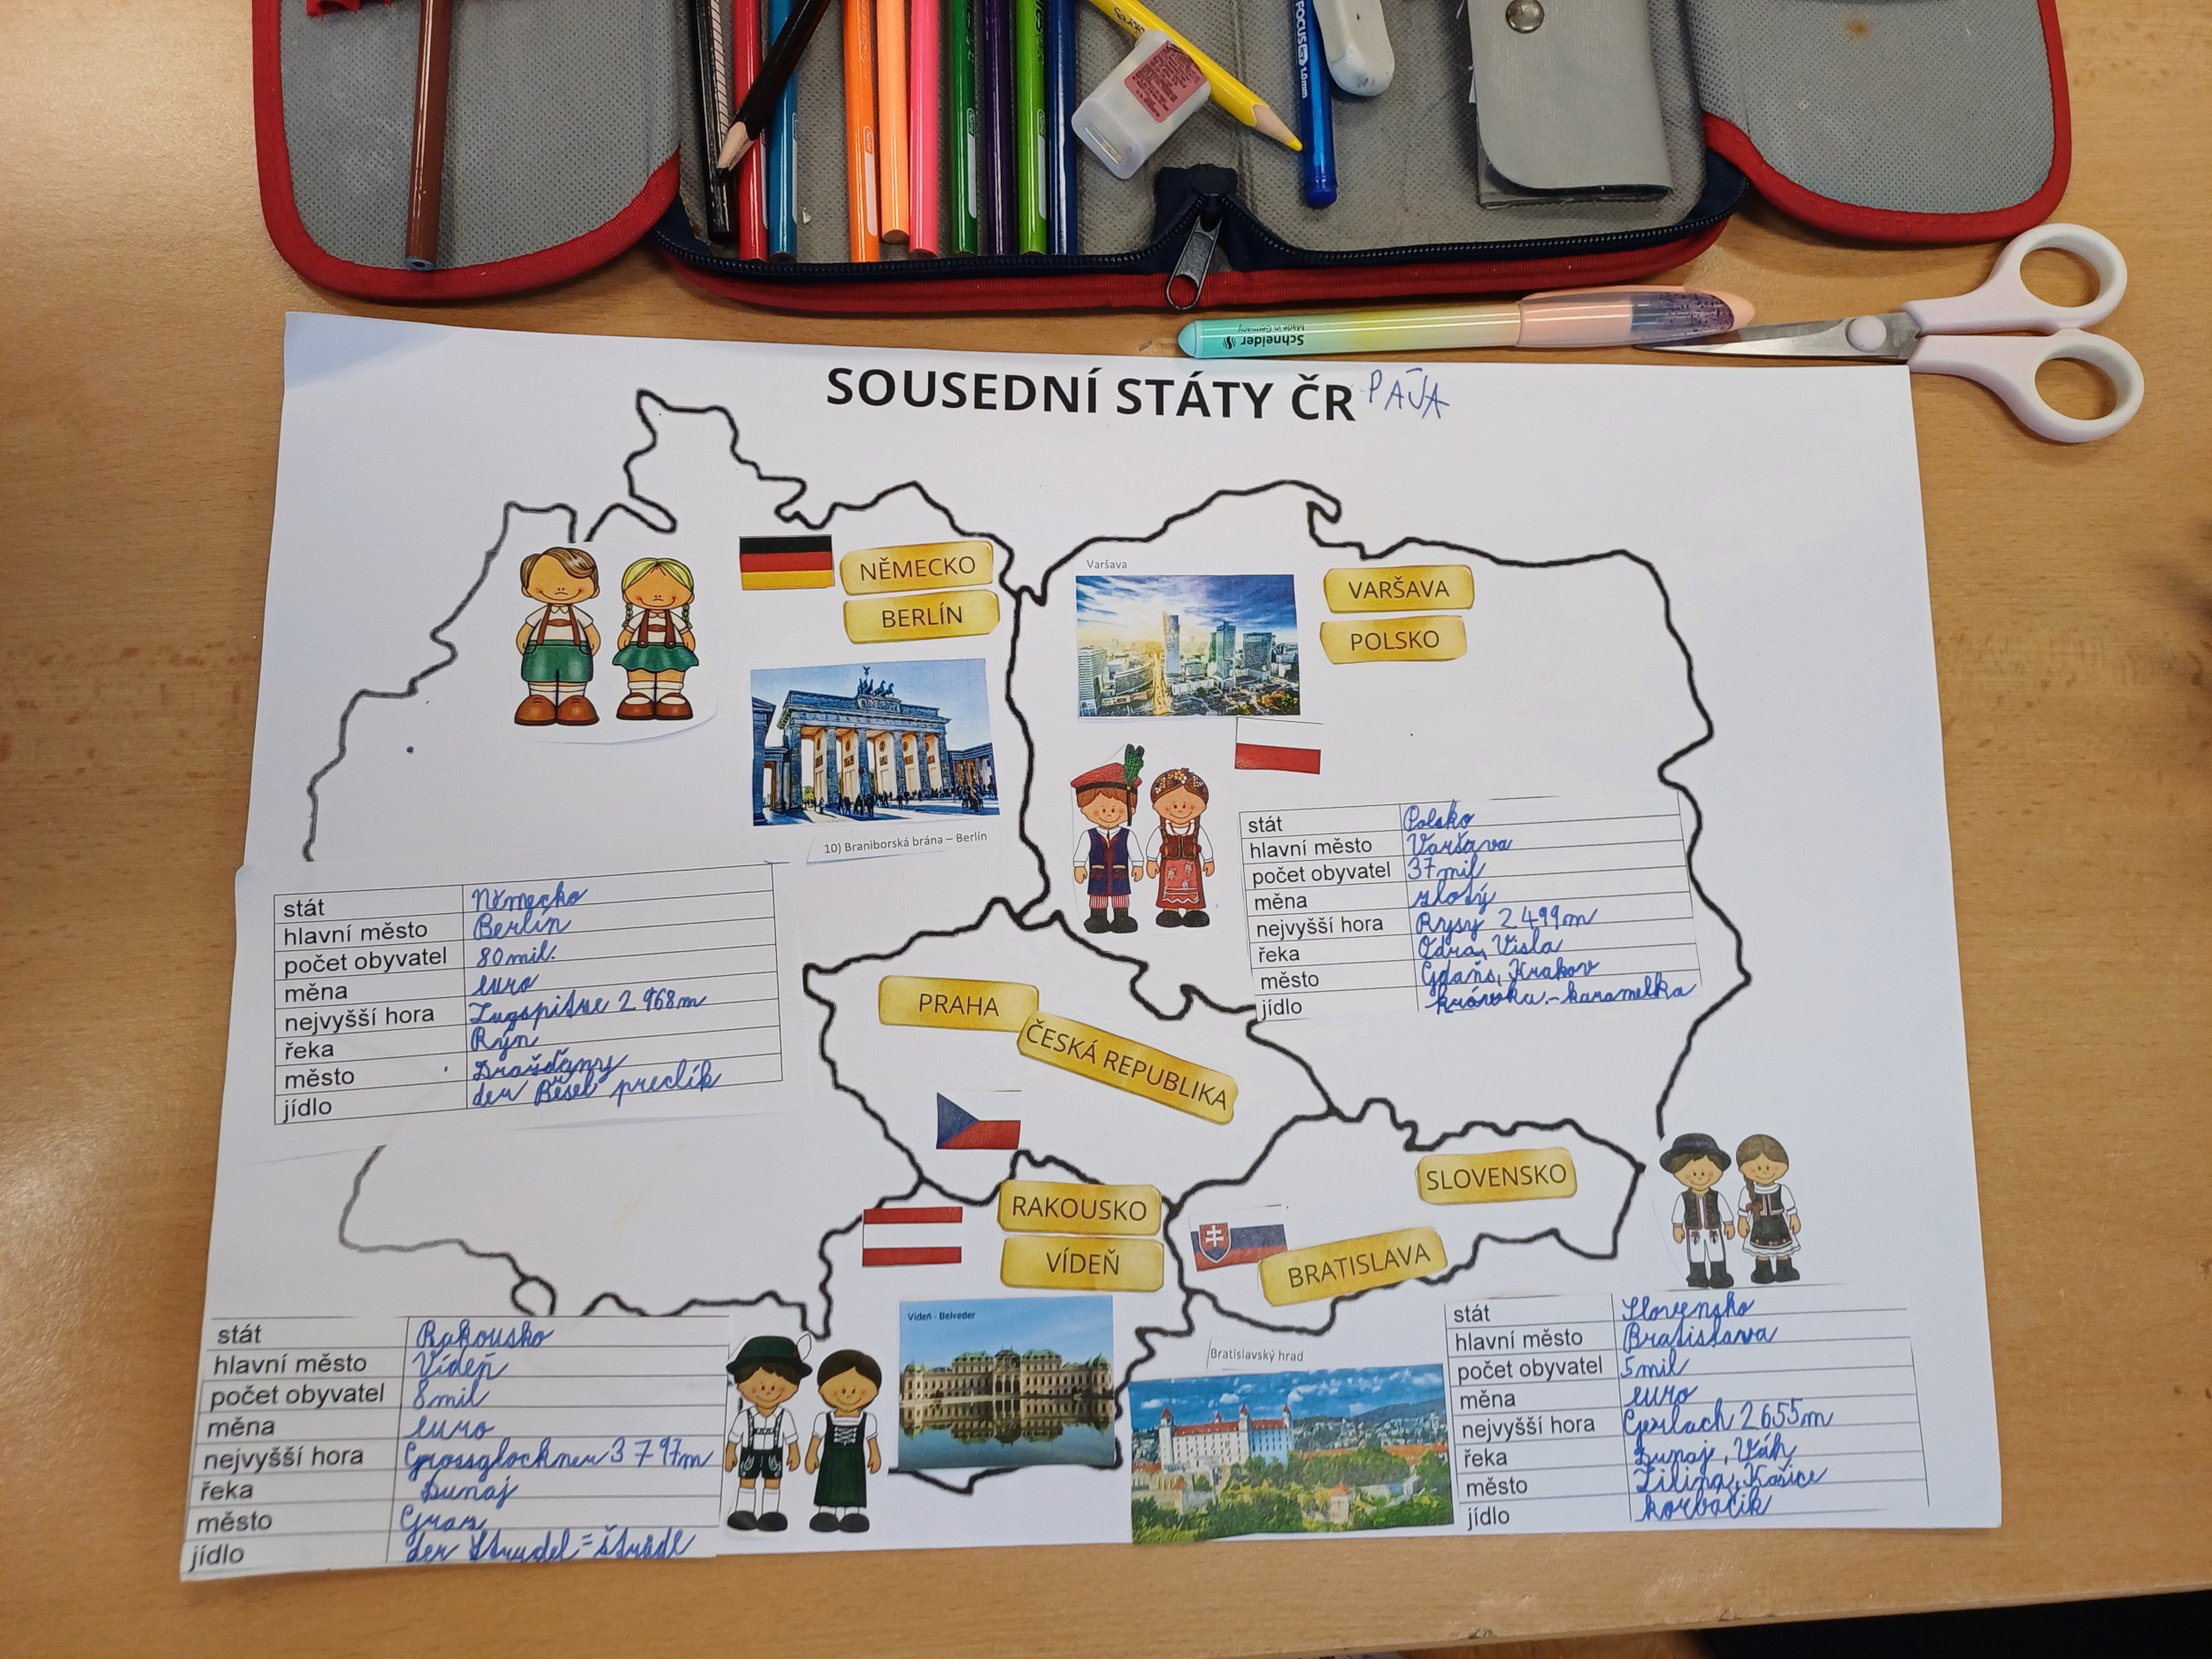 FOCUS 1.0mm
Schneider
Made in Germany
SOUSEDNÍ STÁTY ČR PÁJA
NĚMECKO
BERLÍN
10) Braniborská brána – Berlín
Varšava
VARŠAVA
POLSKO
stát Německo
hlavní město Berlín
počet obyvatel 80mil.
měna euro
nejvyšší hora Zugspitze 2 968m
řeka Rýn
město Drážďany
jídlo preclík
stát Polsko
hlavní město Varšava
počet obyvatel 37mil
měna zlotý
nejvyšší hora Rysy 2 499m
řeka Odra, Visla
město Gdaňs, Krakov
jídlo krówka - karamelka
PRAHA
ČESKÁ REPUBLIKA
RAKOUSKO
VÍDEŇ
SLOVENSKO
BRATISLAVA
Vídeň - Belveder
Bratislavský hrad
stát Rakousko
hlavní město Vídeň
počet obyvatel 8mil
měna euro
nejvyšší hora Grossglockner 3 797m
řeka Dunaj
město Graz
jídlo der Strudel = štrúdl
stát Slovensko
hlavní město Bratislava
počet obyvatel 5mil
měna euro
nejvyšší hora Gerlach 2655m
řeka Dunaj, Váh
město Žilina, Košice
jídlo korbáčik